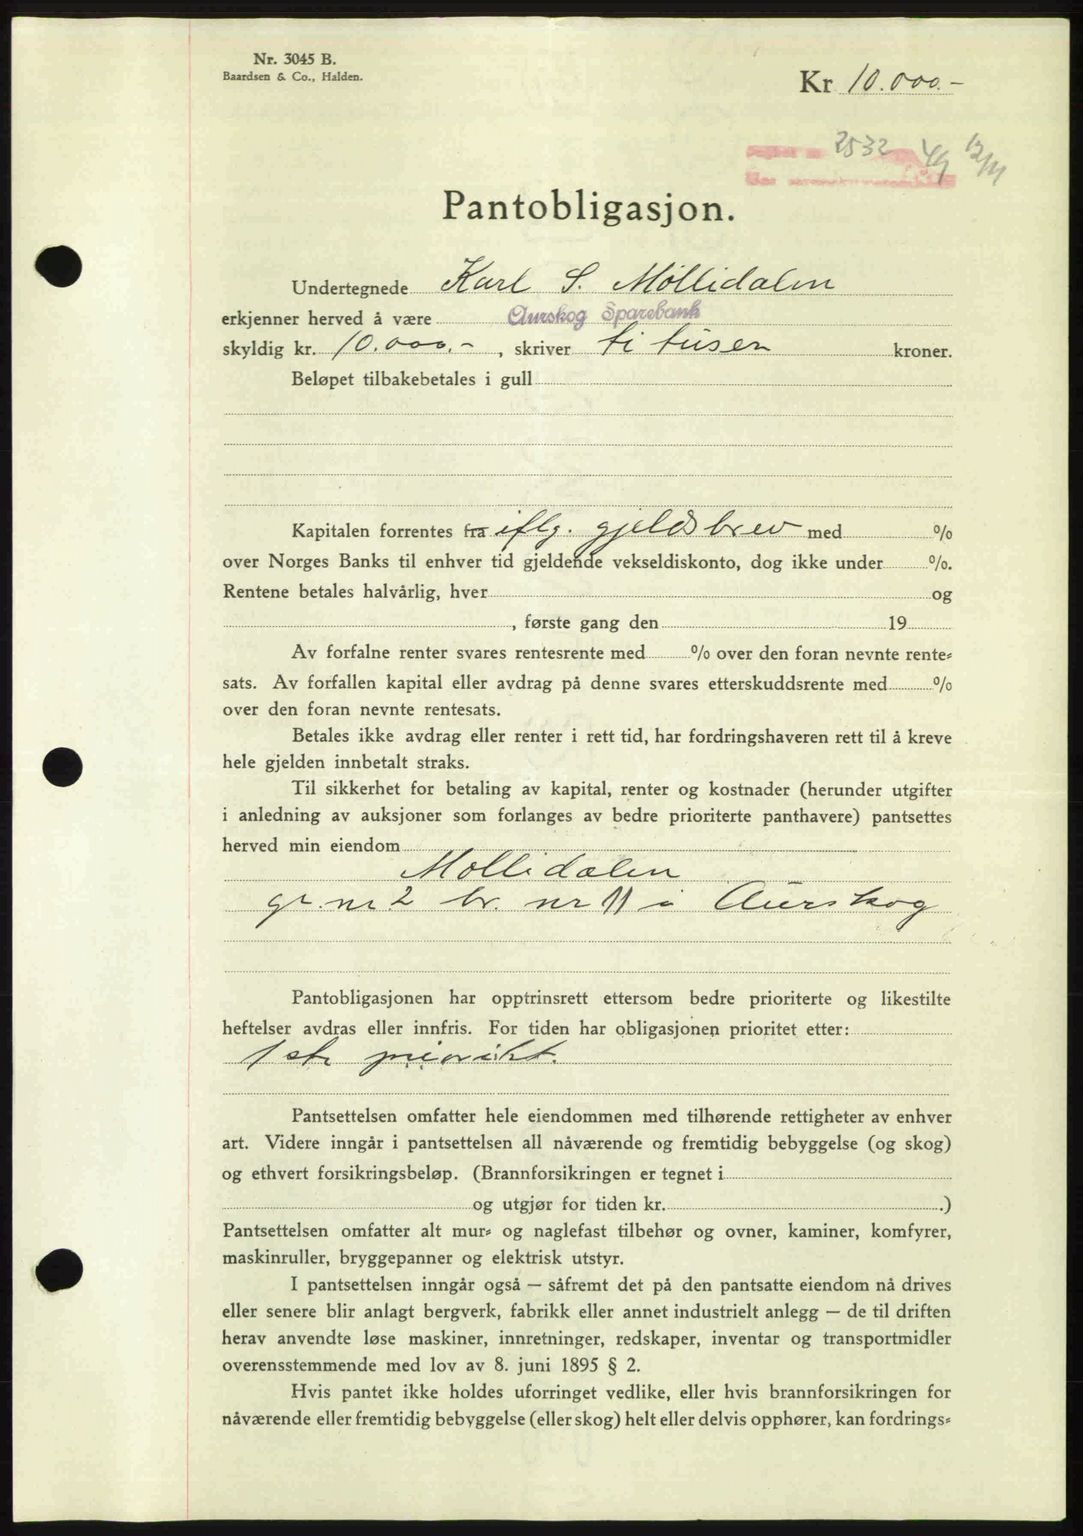 Nr. 3045 B.
Baardsen & Co., Halden.
Kr 10.000.-
2532 49 12/11
Pantobligasjon.
Undertegnede Karl S. Möllidalen
erkjenner herved å være Aurskog Sparebank
skyldig kr. 10.000.-, skriver ti tusen kroner.
Beløpet tilbakebetales i gull
Kapitalen forrentes fra iflg. gjeldsbrev med %
over Norges Banks til enhver tid gjeldende vekseldiskonto, dog ikke under %.
Rentene betales halvårlig, hver og
, første gang den 19
Av forfalne renter svares rentesrente med % over den foran nevnte rente-
sats. Av forfallen kapital eller avdrag på denne svares etterskuddsrente med %
over den foran nevnte rentesats.
Betales ikke avdrag eller renter i rett tid, har fordringshaveren rett til å kreve
hele gjelden innbetalt straks.
Til sikkerhet for betaling av kapital, renter og kostnader (herunder utgifter
i anledning av auksjoner som forlanges av bedre prioriterte panthavere) pantsettes
herved min eiendom
Möllidalen
gr. nr. 2 br. nr 11 i Aurskog
Pantobligasjonen har opptrinsrett ettersom bedre prioriterte og likestilte
heftelser avdras eller innfris. For tiden har obligasjonen prioritet etter:
1ste prioritet.
Pantsettelsen omfatter hele eiendommen med tilhørende rettigheter av enhver
art. Videre inngår i pantsettelsen all nåværende og fremtidig bebyggelse (og skog)
og ethvert forsikringsbeløp. (Brannforsikringen er tegnet i
og utgjør for tiden kr. .)
Pantsettelsen omfatter alt mur- og naglefast tilbehør og ovner, kaminer, komfyrer,
maskinruller, bryggepanner og elektrisk utstyr.
I pantsettelsen inngår også — såfremt det på den pantsatte eiendom nå drives
eller senere blir anlagt bergverk, fabrikk eller annet industrielt anlegg — de til driften
herav anvendte løse maskiner, innretninger, redskaper, inventar og transportmidler
overensstemmende med lov av 8. juni 1895 § 2.
Hvis pantet ikke holdes uforringet vedlike, eller hvis brannforsikringen for
nåværende eller fremtidig bebyggelse (eller skog) helt eller delvis opphører, kan fordrings-